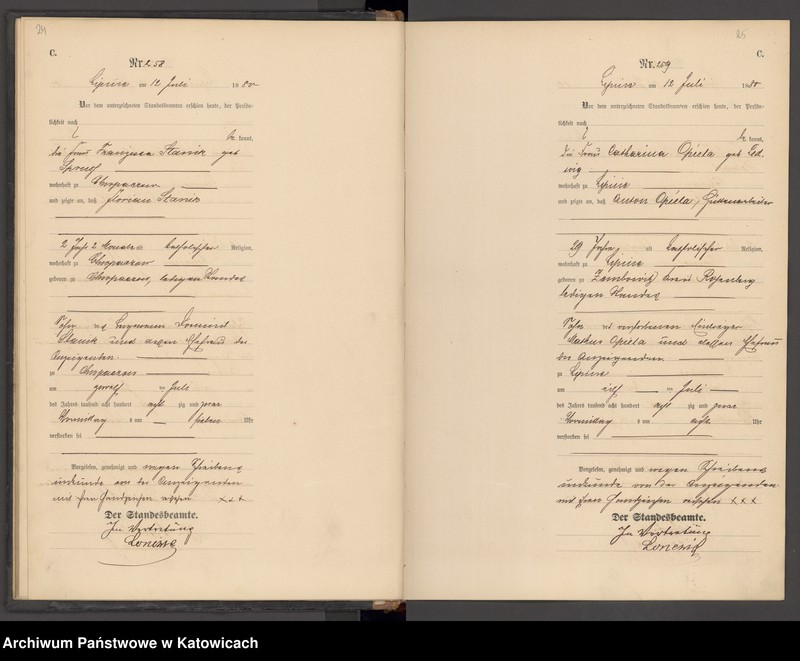 24
C.
Nr. 258
Lipine am 12 Juli 1880
Vor dem unterzeichneten Standesbeamten erschien heute, der Persön-
lichkeit nach
be kannt,
die Frau Franziska Stanik geb
wohnhaft zu Chropaczow
und zeigte an, daß Florian Stanik
2 Jahr 2 Monate alt katholischer Religion,
wohnhaft zu Chropaczow
geboren zu Chropaczow, ledigen Standes
Sohn des Bergmann Dominik
Stanik und dessen Ehefrau der
Anzeigenden
zu Chropaczow
am zwölf ten Juli
des Jahres tausend acht hundert acht zig und zwar
Vormittag s um sieben Uhr
verstorben sei
Vorgelesen, genehmigt und wegen Schreibens
unkunde von der Anzeigenden
mit ihren Handzeichen versehen x x x
Der Standesbeamte.
In Vertretung
25
C.
Nr. 259
Lipine am 12 Juli 1880
Vor dem unterzeichneten Standesbeamten erschien heute, der Persön-
lichkeit nach
be kannt,
die Frau Catharina Opiela geb
wohnhaft zu Lipine
und zeigte an, daß Anton Opiela, Hüttenarbeiter
29 Jahre, alt katholischer Religion,
wohnhaft zu Lipine
geboren zu Zembowitz Kreis Rosenberg
ledigen Standes
Sohn des verstorbenen Einlieger
Mathus Opiela und dessen Ehefrau
der Anzeigenden
zu Lipine
am elf ten Juli
des Jahres tausend acht hundert acht zig und zwar
Vormittag s um acht Uhr
verstorben sei
Vorgelesen, genehmigt und wegen Schreibens
unkunde von der Anzeigenden
mit ihren Handzeichen versehen x x x
Der Standesbeamte.
In Vertretung
Archiwum Państwowe w Katowicach